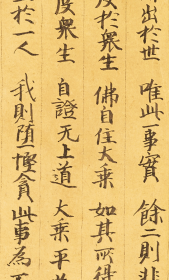 出於世 唯此一事實 餘二則非
度於衆生 佛自住大乘 如其所得
度衆生 自證无上道 大乘平
於一人 我則墮慳貪 此事為